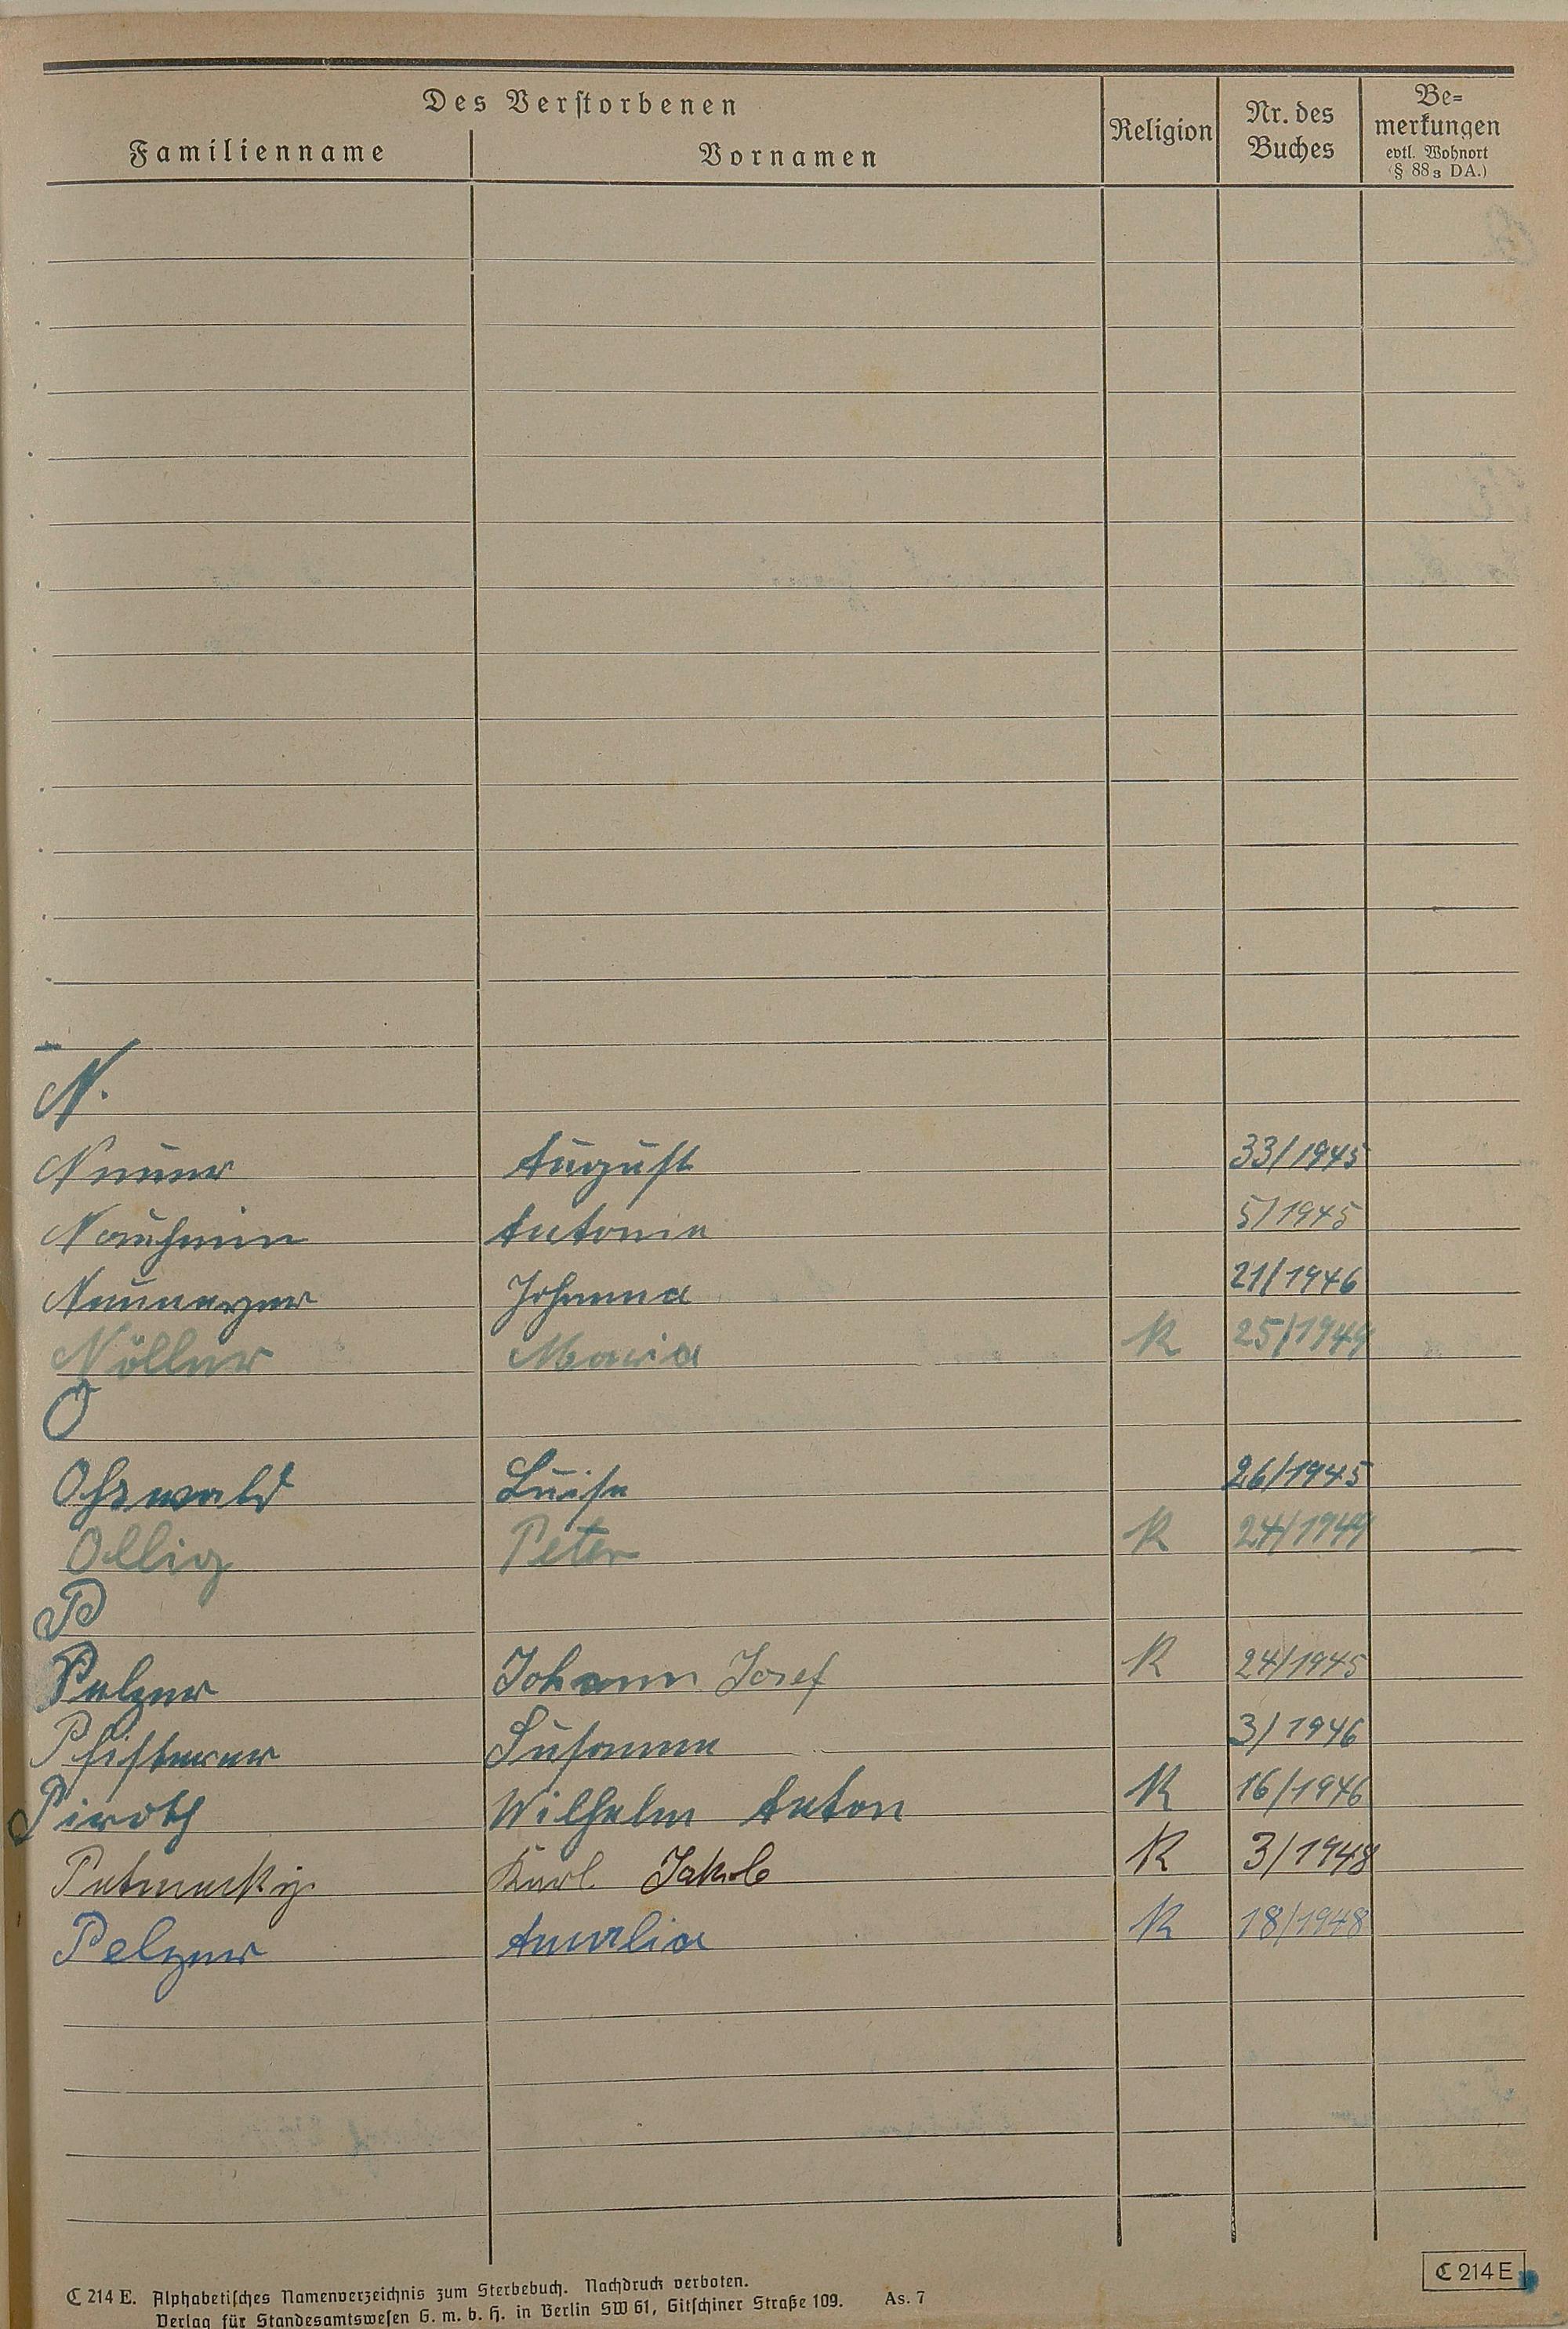 Des Verstorbenen
Familienname Vornamen Religion Nr. des Buches Be=merkungen evtl. Wohnort (§ 88 3 DA.)
N.
August 33/1945
Antonia 5/1945
Johanna 21/1946
Nöller Maria K 25/1949
O
Ohswald Luise 26/1945
Ollig Peter K 24/1949
P
Pelzer Johann Josef K 24/1945
Pfisterer Susanna 3/1946
Piroth Wilhelm Anton K 16/1946
Karl Jakob K 3/1948
Pelzer Amalia K 18/1948
C 214 E. Alphabetisches Namenverzeichnis zum Sterbebuch. Nachdruck verboten.
Verlag für Standesamtswesen G. m. b. H. in Berlin SW 61, Gitschiner Straße 109. As. 7
C 214 E